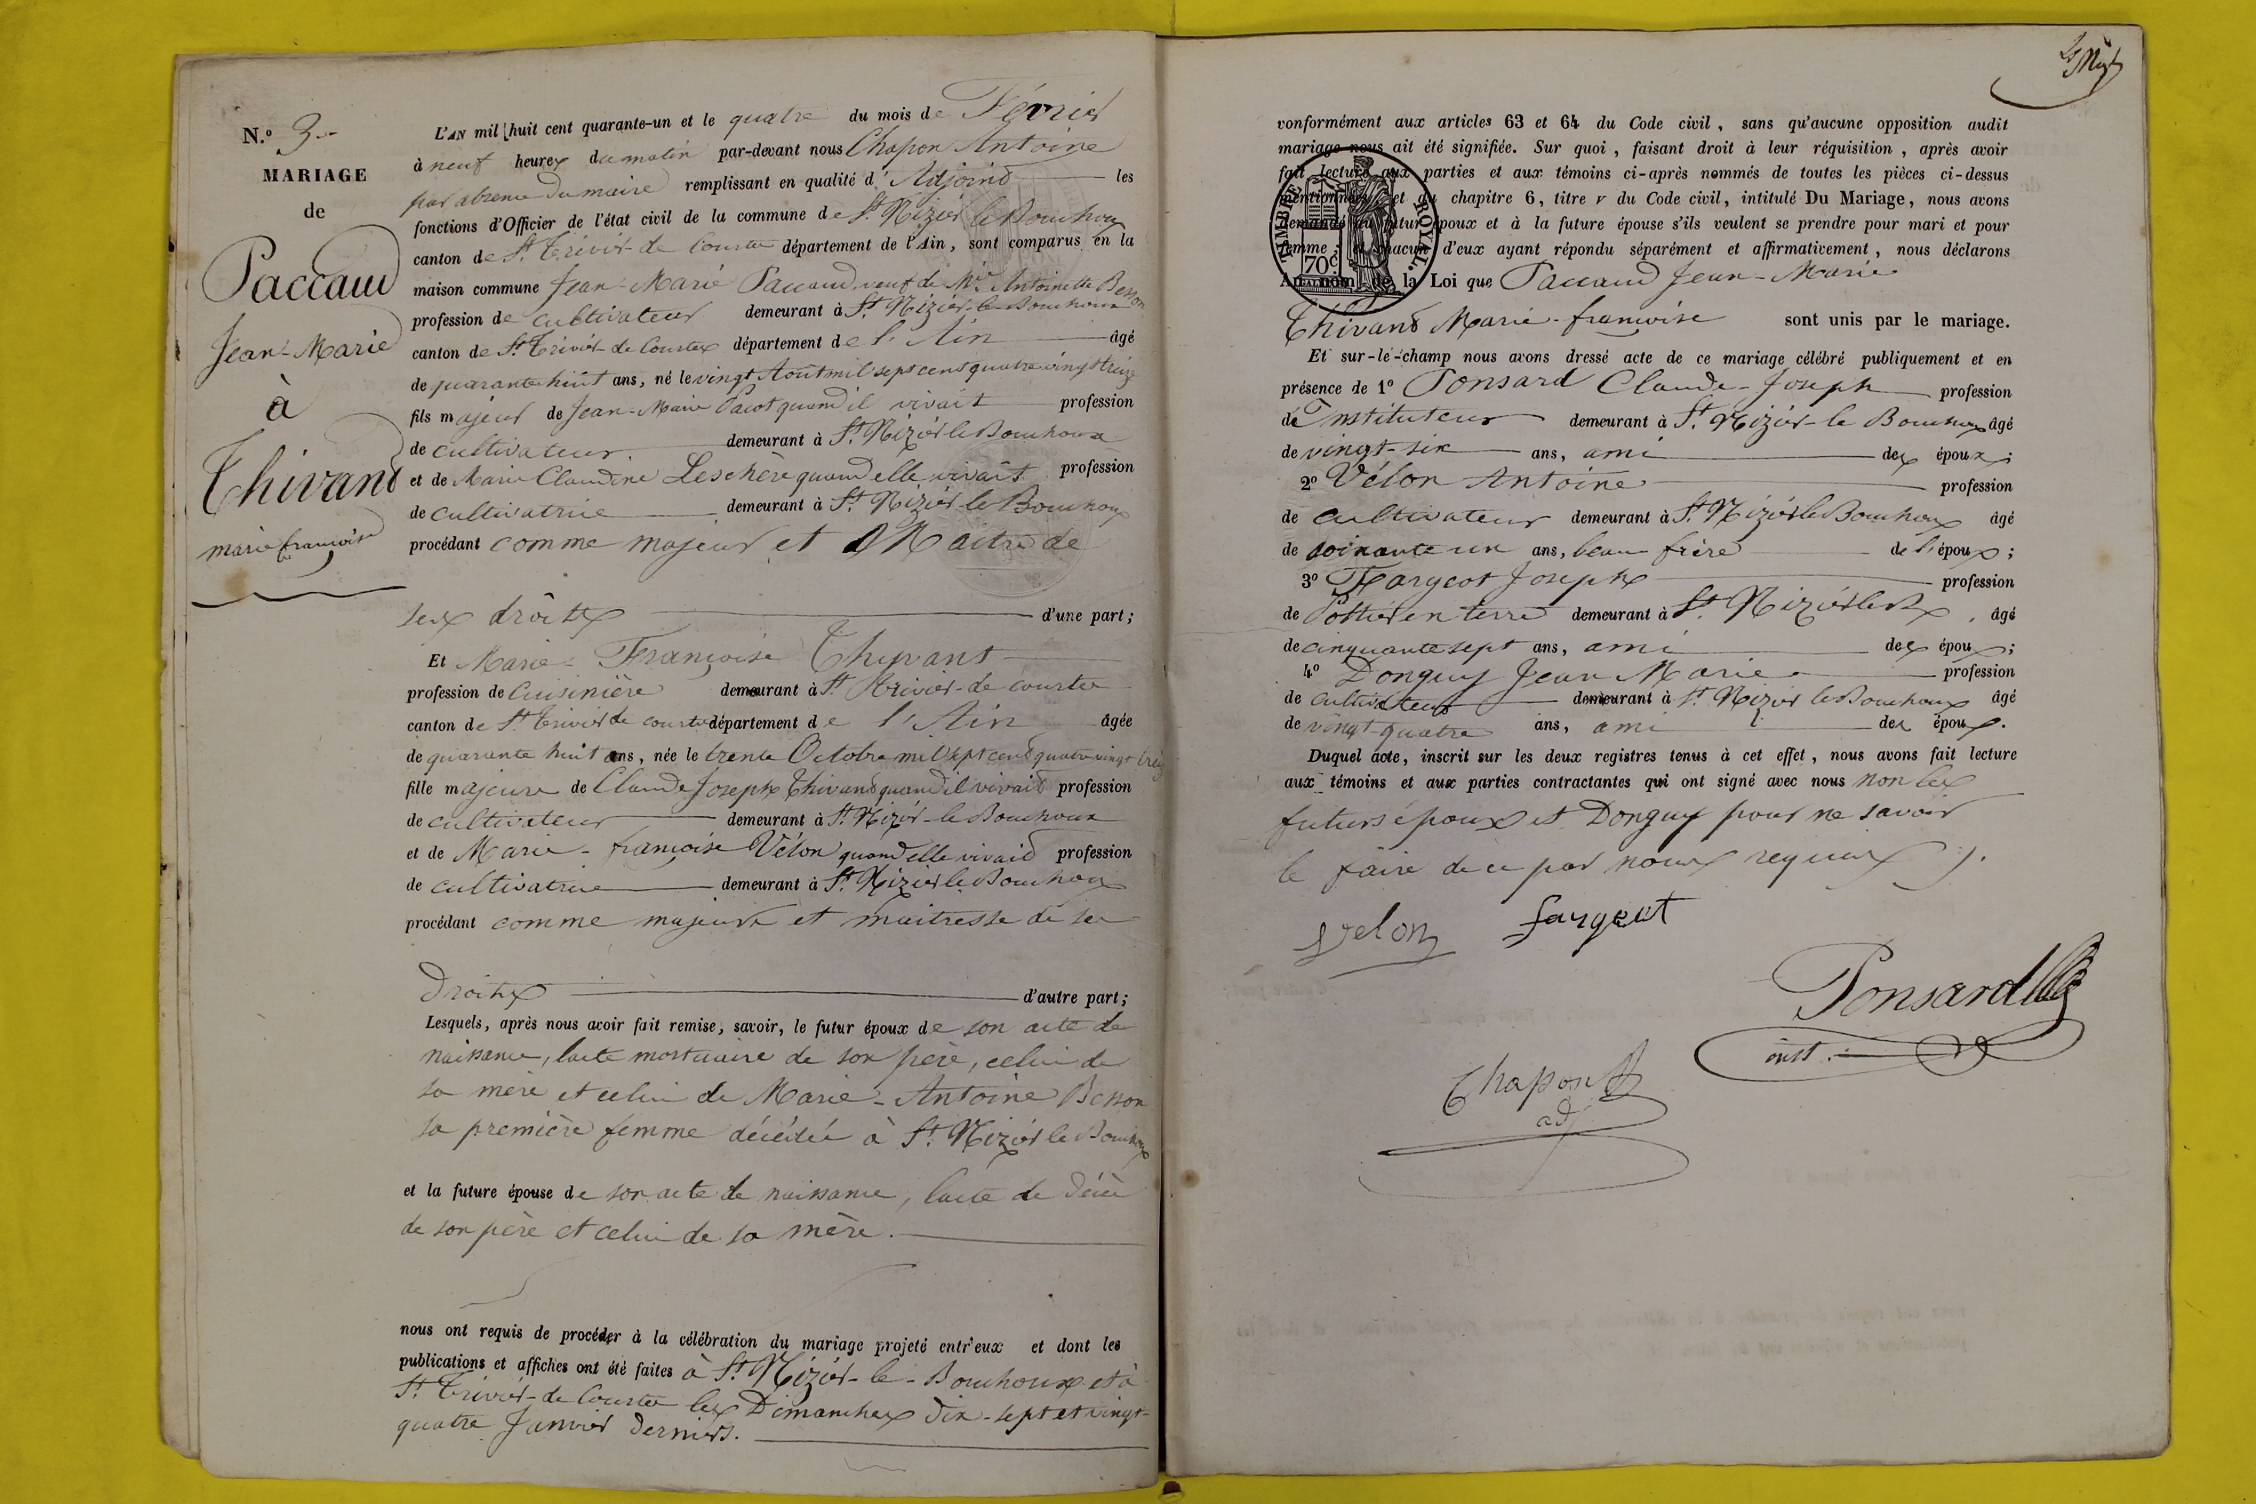 N.º 3.
MARIAGE
de
Paccaud
Jean-Marie
à
Thivand
marie françoise
L'AN mil huit cent quarante-un et le quatre du mois de Février
à neuf heures du matin par-devant nous Chapon Antoine
par absence du maire remplissant en qualité d'Adjoind les
fonctions d'Officier de l'état civil de la commune de St. Nizier le Bouchoux
canton de St. Trivier-de Courtes département de l'Ain, sont comparus en la
maison commune Jean-Marie Paccaud veuf de Mie Antoinette Besson
profession de cultivateur demeurant à St. Nizier-le-Bouchoux
canton de St. Trivier-de Courtes département de l'Ain âgé
de quarante huit ans, né le vingt Août mil sept cent quatre vingt treize
fils majeur de Jean-Marie Pacot quand il vivait profession
de cultivateur demeurant à St. Nizier le Bouchoux
et de Marie Claudine Leschère quand elle vivait profession
de cultivatrice demeurant à St. Nizier le Bouchoux
procédant comme majeur et Maitre de
ses droits d'une part;
Et Marie-Françoise Thyvant
profession de Cuisinière demeurant à St. Trivier-de courtes
canton de St. Trivier de courtes département de l'Ain âgée
de quarante huit ans, née le trente Octobre mil sept cent quatre vingt treize
fille majeure de Claude Joseph Thivand quand il vivait profession
de cultivateur demeurant à St. Nizier-le Bouchoux
et de Marie-françoise Vélon quand elle vivait profession
de cultivatrice demeurant à St. Nizier le Bouchoux
procédant comme majeure et maitresse de ses
Droits d'autre part;
Lesquels, après nous avoir fait remise, savoir, le futur époux de son acte de
naissance, l'acte mortuaire de son père, celui de
sa mère et celui de Marie-Antoine Besson
sa première femme décédée à St. Nizier le Bouchoux
et la future épouse de son acte de naissance, l'acte de décès
de son père et celui de sa mère.
nous ont requis de procéder à la célébration du mariage projeté entr'eux et dont les
publications et affiches ont été faites à St. Nizier-le-Bouchoux et à
St. Trivier-de Courtes les Dimanches dix-sept et vingt-
quatre Janvier derniers.
vonformément aux articles 63 et 64 du Code civil, sans qu'aucune opposition audit
mariage nous ait été signifiée. Sur quoi, faisant droit à leur réquisition, après avoir
fait lecture aux parties et aux témoins ci-après nommés de toutes les pièces ci-dessus
mentionnées et du chapitre 6, titre v du Code civil, intitulé Du Mariage, nous avons
demandé au futur époux et à la future épouse s'ils veulent se prendre pour mari et pour
femme; et chacun d'eux ayant répondu séparément et affirmativement, nous déclarons
Au nom de la Loi que Paccaud Jean-Marie
TIMBRE ROYAL.
70c
Thivand Marie-françoise sont unis par le mariage.
Et sur-le-champ nous avons dressé acte de ce mariage célébré publiquement et en
présence de 1º Ponsard Claude-Joseph profession
de Instituteur demeurant à St. Nizier-le Bouchoux âgé
de vingt-six ans, ami des époux;
2º Vélon Antoine profession
de cultivateur demeurant à St. Nizier le Bouchoux âgé
de soixante un ans, beau frère de l'époux;
3º Fargeot Joseph profession
de Pottier en terre demeurant à St. Nizier le Bx âgé
de cinquante sept ans, ami des époux;
4º Donguy Jean Marie profession
de cultivateur demeurant à St. Nizier le Bouchoux âgé
de vingt-quatre ans, ami des époux.
Duquel acte, inscrit sur les deux registres tenus à cet effet, nous avons fait lecture
aux témoins et aux parties contractantes qui ont signé avec nous non les
futurs époux et Donguy pour ne savoir
le faire de ce par nous requis).
Velon fargeot
Ponsard
inst.
Chapon
adj